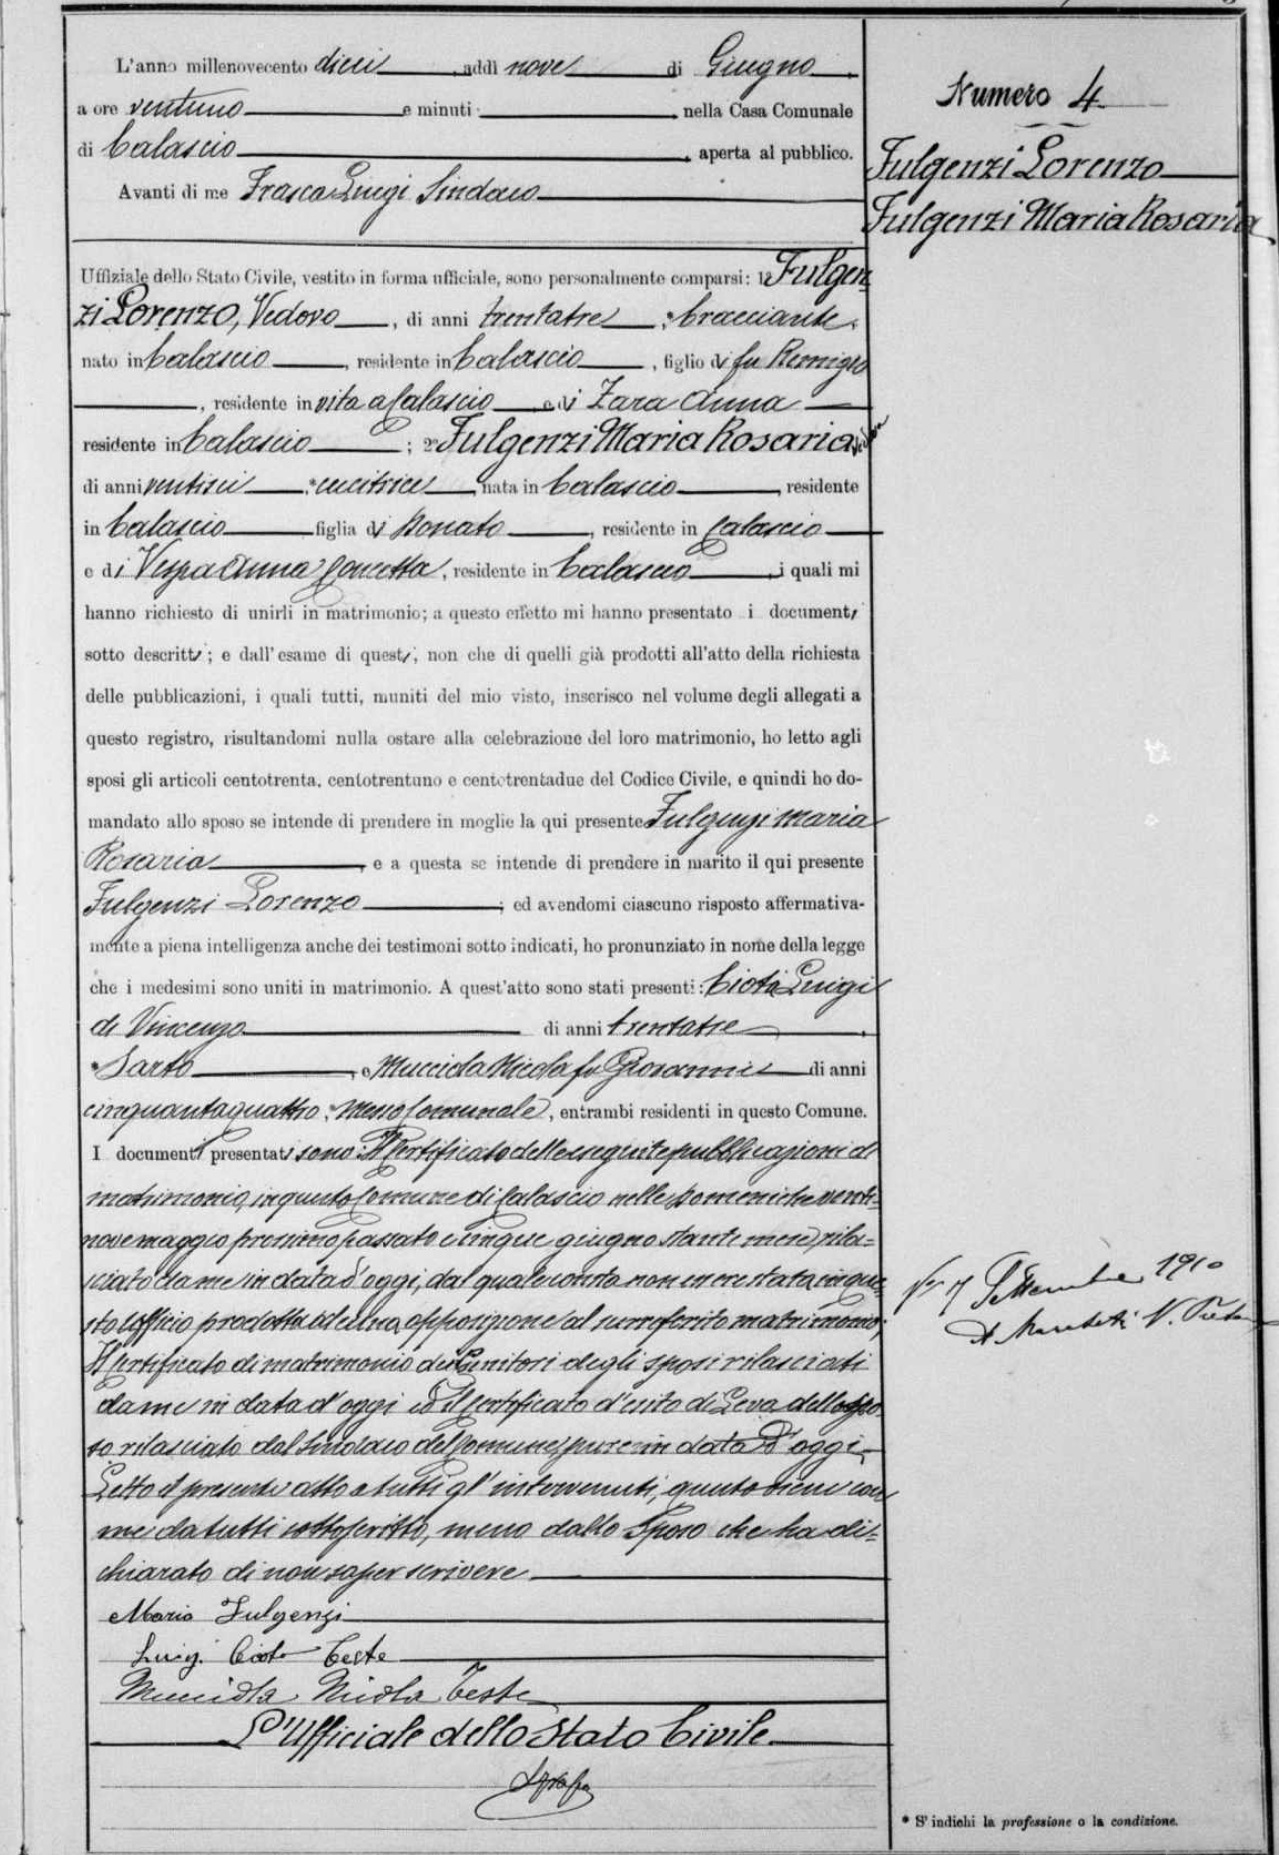 L'anno millenovecento dieci, addì nove di Giugno,
a ore ventuno e minuti, nella Casa Comunale
di Calascio, aperta al pubblico.
Avanti di me Frasca Luigi Sindaco
Numero 4
Fulgenzi Lorenzo
Fulgenzi Maria Rosaria
Uffiziale dello Stato Civile, vestito in forma ufficiale, sono personalmente comparsi: 1º Fulgen-
zi Lorenzo, Vedovo, di anni trentatre, * bracciante,
nato in Calascio, residente in Calascio, figlio di fu Remigio
, residente in vita a Calascio e di Zara Anna
residente in Calascio; 2º Fulgenzi Maria Rosaria,
di anni ventisei, * cucitrice, nata in Calascio, residente
in Calascio figlia di Donato, residente in Calascio
e di Vespa Anna Concetta, residente in Calascio, i quali mi
hanno richiesto di unirli in matrimonio; a questo effetto mi hanno presentato i documenti
sotto descritti; e dall'esame di questi, non che di quelli già prodotti all'atto della richiesta
delle pubblicazioni, i quali tutti, muniti del mio visto, inserisco nel volume degli allegati a
questo registro, risultandomi nulla ostare alla celebrazione del loro matrimonio, ho letto agli
sposi gli articoli centotrenta, centotrentuno e centotrentadue del Codice Civile, e quindi ho do-
mandato allo sposo se intende di prendere in moglie la qui presente Fulgenzi Maria
Rosaria, e a questa se intende di prendere in marito il qui presente
Fulgenzi Lorenzo; ed avendomi ciascuno risposto affermativa-
mente a piena intelligenza anche dei testimoni sotto indicati, ho pronunziato in nome della legge
che i medesimi sono uniti in matrimonio. A quest'atto sono stati presenti: Ciota Luigi
di Vincenzo di anni trentatre,
* Sarto, e Muccida Nicola fu Giovanni di anni
cinquantaquattro, * Messo Comunale, entrambi residenti in questo Comune.
I documenti presentati sono: Il Certificato delle eseguite pubblicazioni di
matrimonio, in questo Comune di Calascio nelle Domeniche venti-
nove maggio prossimo passato e cinque giugno stante mese, rila-
sciato da me in data d'oggi, dal quale consta non essere stata in que-
sto Ufficio prodotta alcuna opposizione al surreferito matrimonio;
Il certificato di matrimonio dei Genitori degli sposi rilasciati
da me in data d'oggi ed il certificato d'esito di Leva dello spo-
so rilasciato dal Sindaco del Comune, pure in data d'oggi.
Letto il presente atto a tutti gl'intervenuti, questo viene con
me da tutti sottoscritto, meno dallo Sposo che ha di-
chiarato di non saper scrivere
Maria Fulgenzi
Luigi Ciota Teste
Muccida Nicola Teste
L'Ufficiale dello Stato Civile
LFrasca
7 Settembre 1910
* S'indichi la professione o la condizione.